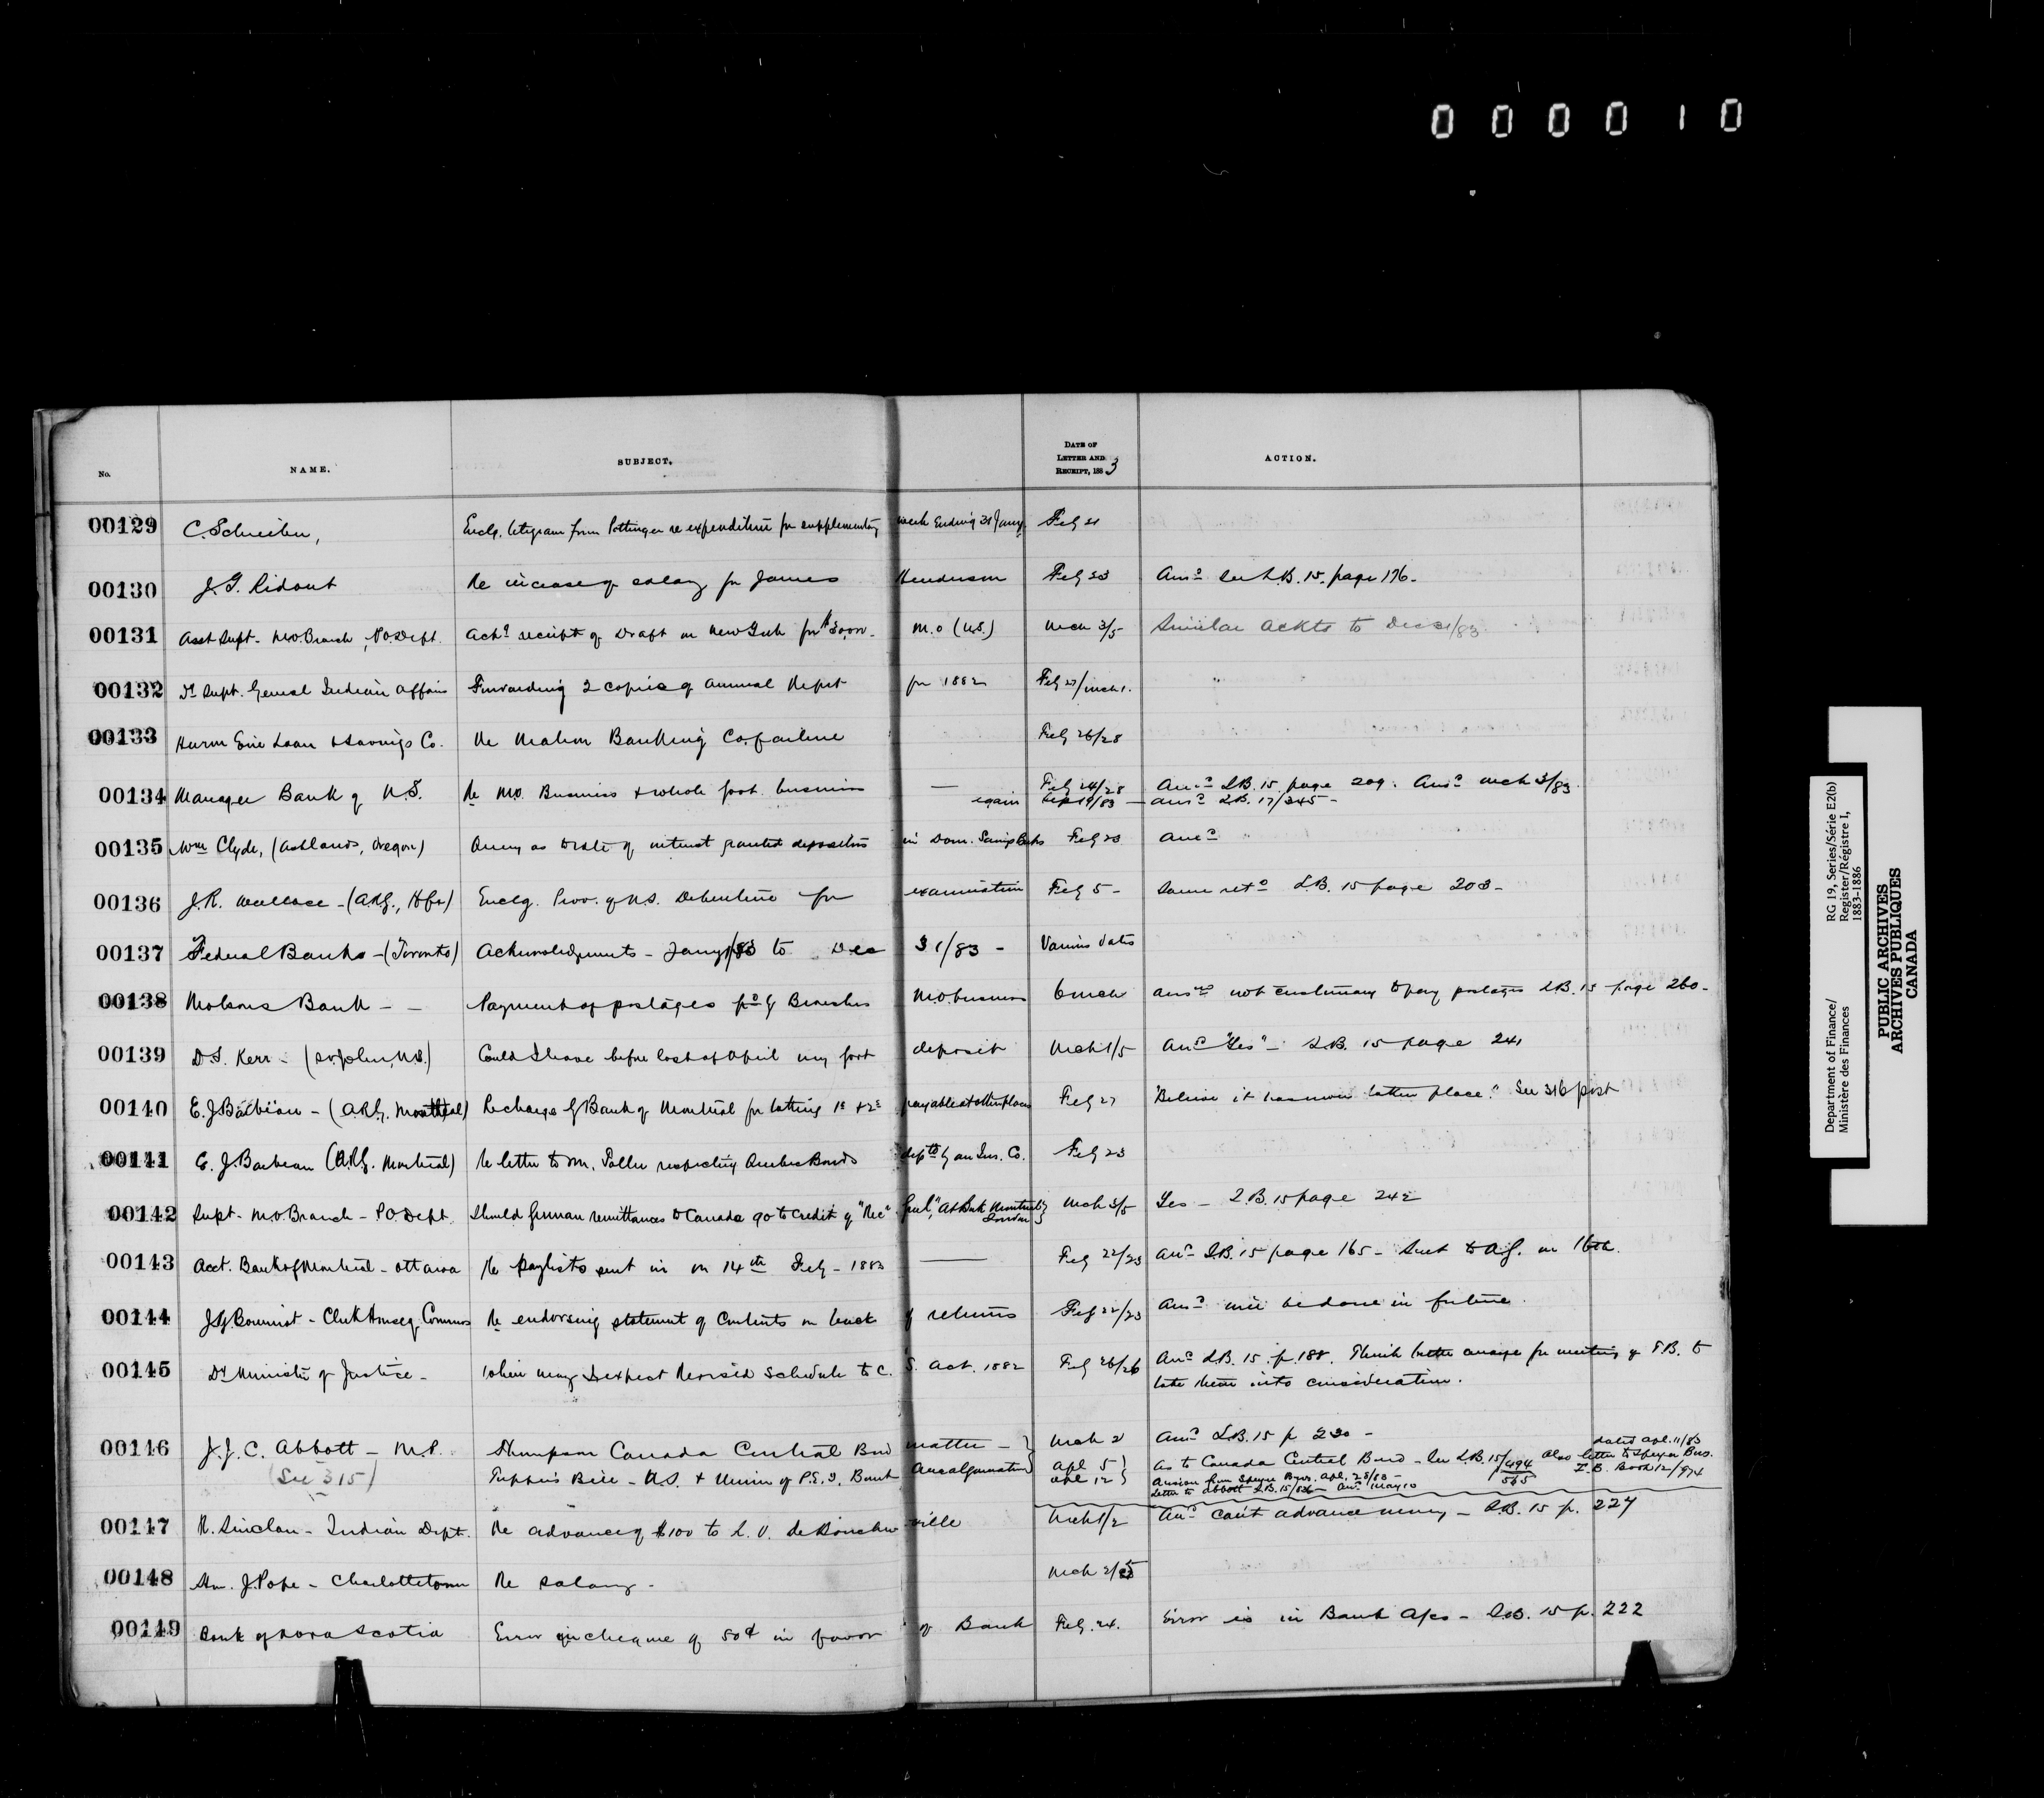 000010
No. NAME. SUBJECT. DATE OF LETTER AND RECEIPT, 1883 ACTION.
00129 C. Schreiber, Enclg. telegram from Pottinger re expenditure for supplementary week ending 31 Jany. Feby 21
00130 J.G. Ridout Re increase of salary for James Henderson Feby 23 Ansd See L.B. 15. page 176.
00131 Asst Supt - M.O. Branch, P.O. Dept. Ackg receipt of Draft on New York for M.O (U.S.) Mch 3/5 Similar ackts to Dec 31/83
00132 Dy Supt. General Indian Affairs Forwarding 2 copies of Annual Report for 1882 Feby 27/Mch 1.
00133 Huron Erie Loan & Savings Co. Re Mahon Banking Co. failure Feby 26/28
00134 Manager Bank of N.S. Re M.O. Business & whole govt. business — Feby 24/28 Ansd L.B. 15. page 209. Ansd Mch 3/83
again Sep 19/83 — ansd L.B. 17/345 -
00135 Wm Clyde, (Ashland, Oregon) Query as to rate of interest granted depositors in Dom. Savings Banks Feby 20 Ansd
00136 J.R. Wallace - (A.R.G., Hfx) Enclg. Prov. of N.S. Debenture for examination Feby 5 - Same retd L.B. 15 page 203 -
00137 Federal Bank - (Toronto) Acknowledgments - Jany 1/83 to Dec 31/83 - Various dates
00138 Molsons Bank - - Payment of postages pd by Branches M.O. business 6 Mch ansd not customary to pay postages L.B. 15 page 260 -
00139 D.S. Kerr - (St. John, N.B.) Could I have before last of April my govt deposit Mch 1/5 Ansd "Yes" - L.B. 15 page 241
00140 E.J. Barbeau - (A.R.G. Montreal) Re charge by Bank of Montreal for 1s & 2s payable at other places Feby 27 "Believe it has never taken place." See 316 post
00141 E. J. Barbeau (A.R.G. Montreal) Re letter to Mr. respecting Quebec Bonds deptd by an Ins. Co. Feby 23
00142 Supt - M.O. Branch - P.O. Dept. Should German remittances to Canada go to credit of "Rec Genl", at Bank Montreal London Mch 3/5 Yes - L.B. 15 page 242
00143 Acct. Bank of Montreal - Ottawa Re paylists sent in on 14th Feby - 1883 — Feby 22/23 Ansd L.B. 15 page 165 - Sent to A.G. on 16th.
00144 J.G. Bourinot - Clerk House of Commons Re endorsing statement of Contents on back of returns Feby 22/23 Ansd will be done in future.
00145 Dy Minister of Justice - When may I expect Revised Schedule to C. S. Act. 1882 Feby 26/26 Ansd L.B. 15. p. 188. Think better arrange for meeting of T.B. to
take them into consideration.
00146 J.J.C. Abbott - M.P. Thompson Canada Central Bond matter - Mch 2 Ansd L.B. 15 p 230 -
(See 315) Tupper's Bill - N.S. & Union of P.E.I. Bank Amalgamation Apl 5 As to Canada Central Bond - See L.B. 15/494 565 also letter to Speyer Bros. dated Apl. 11/83 I.B. Book 12/974
Apl 12 Answer from Speyer Bros. Apl. 28/83 -
Letter to Abbott L.B. 15/836 - Ansd May 10
00147 R. Sinclair - Indian Dept. Re advance of $100 to L. V. de Boucherville Mch 1/2 Ansd can't advance money - L.B. 15 p. 227
00148 Hon. J. Pope - Charlottetown Re salary - Mch 2/5
00149 Bank of Nova Scotia Error in cheque of 50¢ in favor of Bank Feby. 24. Error is in Bank a/cs - L.B. 15 p. 222
Department of Finance/
Ministère des Finances
RG 19, Series/Série E2(b)
Register/Régistre I,
1883-1886
PUBLIC ARCHIVES
ARCHIVES PUBLIQUES
CANADA